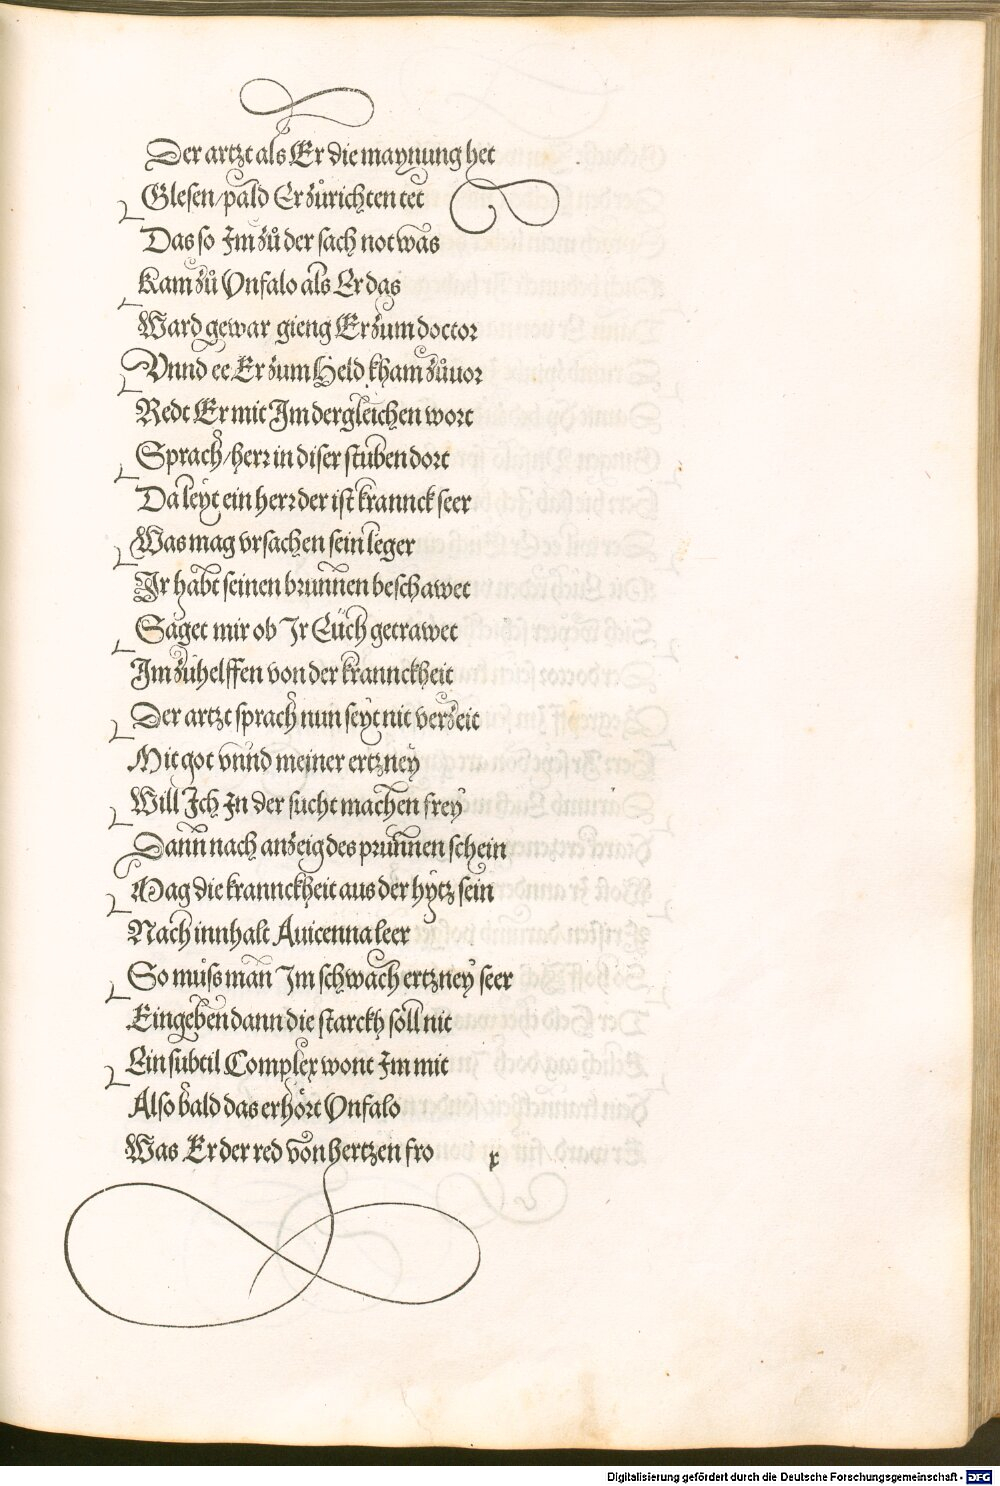 Der artzt als Er die maynung het
Glesen/pald Er zůrichten tet
Das so Im zů der sach not was
Kam zů Vnfalo als Er das
Ward gewar gieng Er zum doctor
Vnnd ee Er zum Held kham zůuor
Redt Er mit Im dergleichen wort
Sprach/herr in diser stuben dort
Da leyt ein herr der ist krannck seer
Was mag vrsachen sein leger
Ir habt seinen brunnen beschawet
Saget mir ob Ir Euch getrawet
Im zůhelffen von der kranncкheit
Der artzt sprach nun seyt nit verzeit
Mit got vnnd meiner ertzney
Will Ich In der sucht machen frey
Dann nach anzeig des prunnen schein
Mag die kranncкheit aus der hytz sein
Nach innhalt Auicenna leer
So můss man Im schwach ertzney seer
Eingeben dann die starckh soll nit
Ein subtil Complex wont Im mit
Also bald das erhört Vnfalo
Was Er der red von hertzen fro x
Digitalisierung gefördert durch die Deutsche Forschungsgemeinschaft - DFG